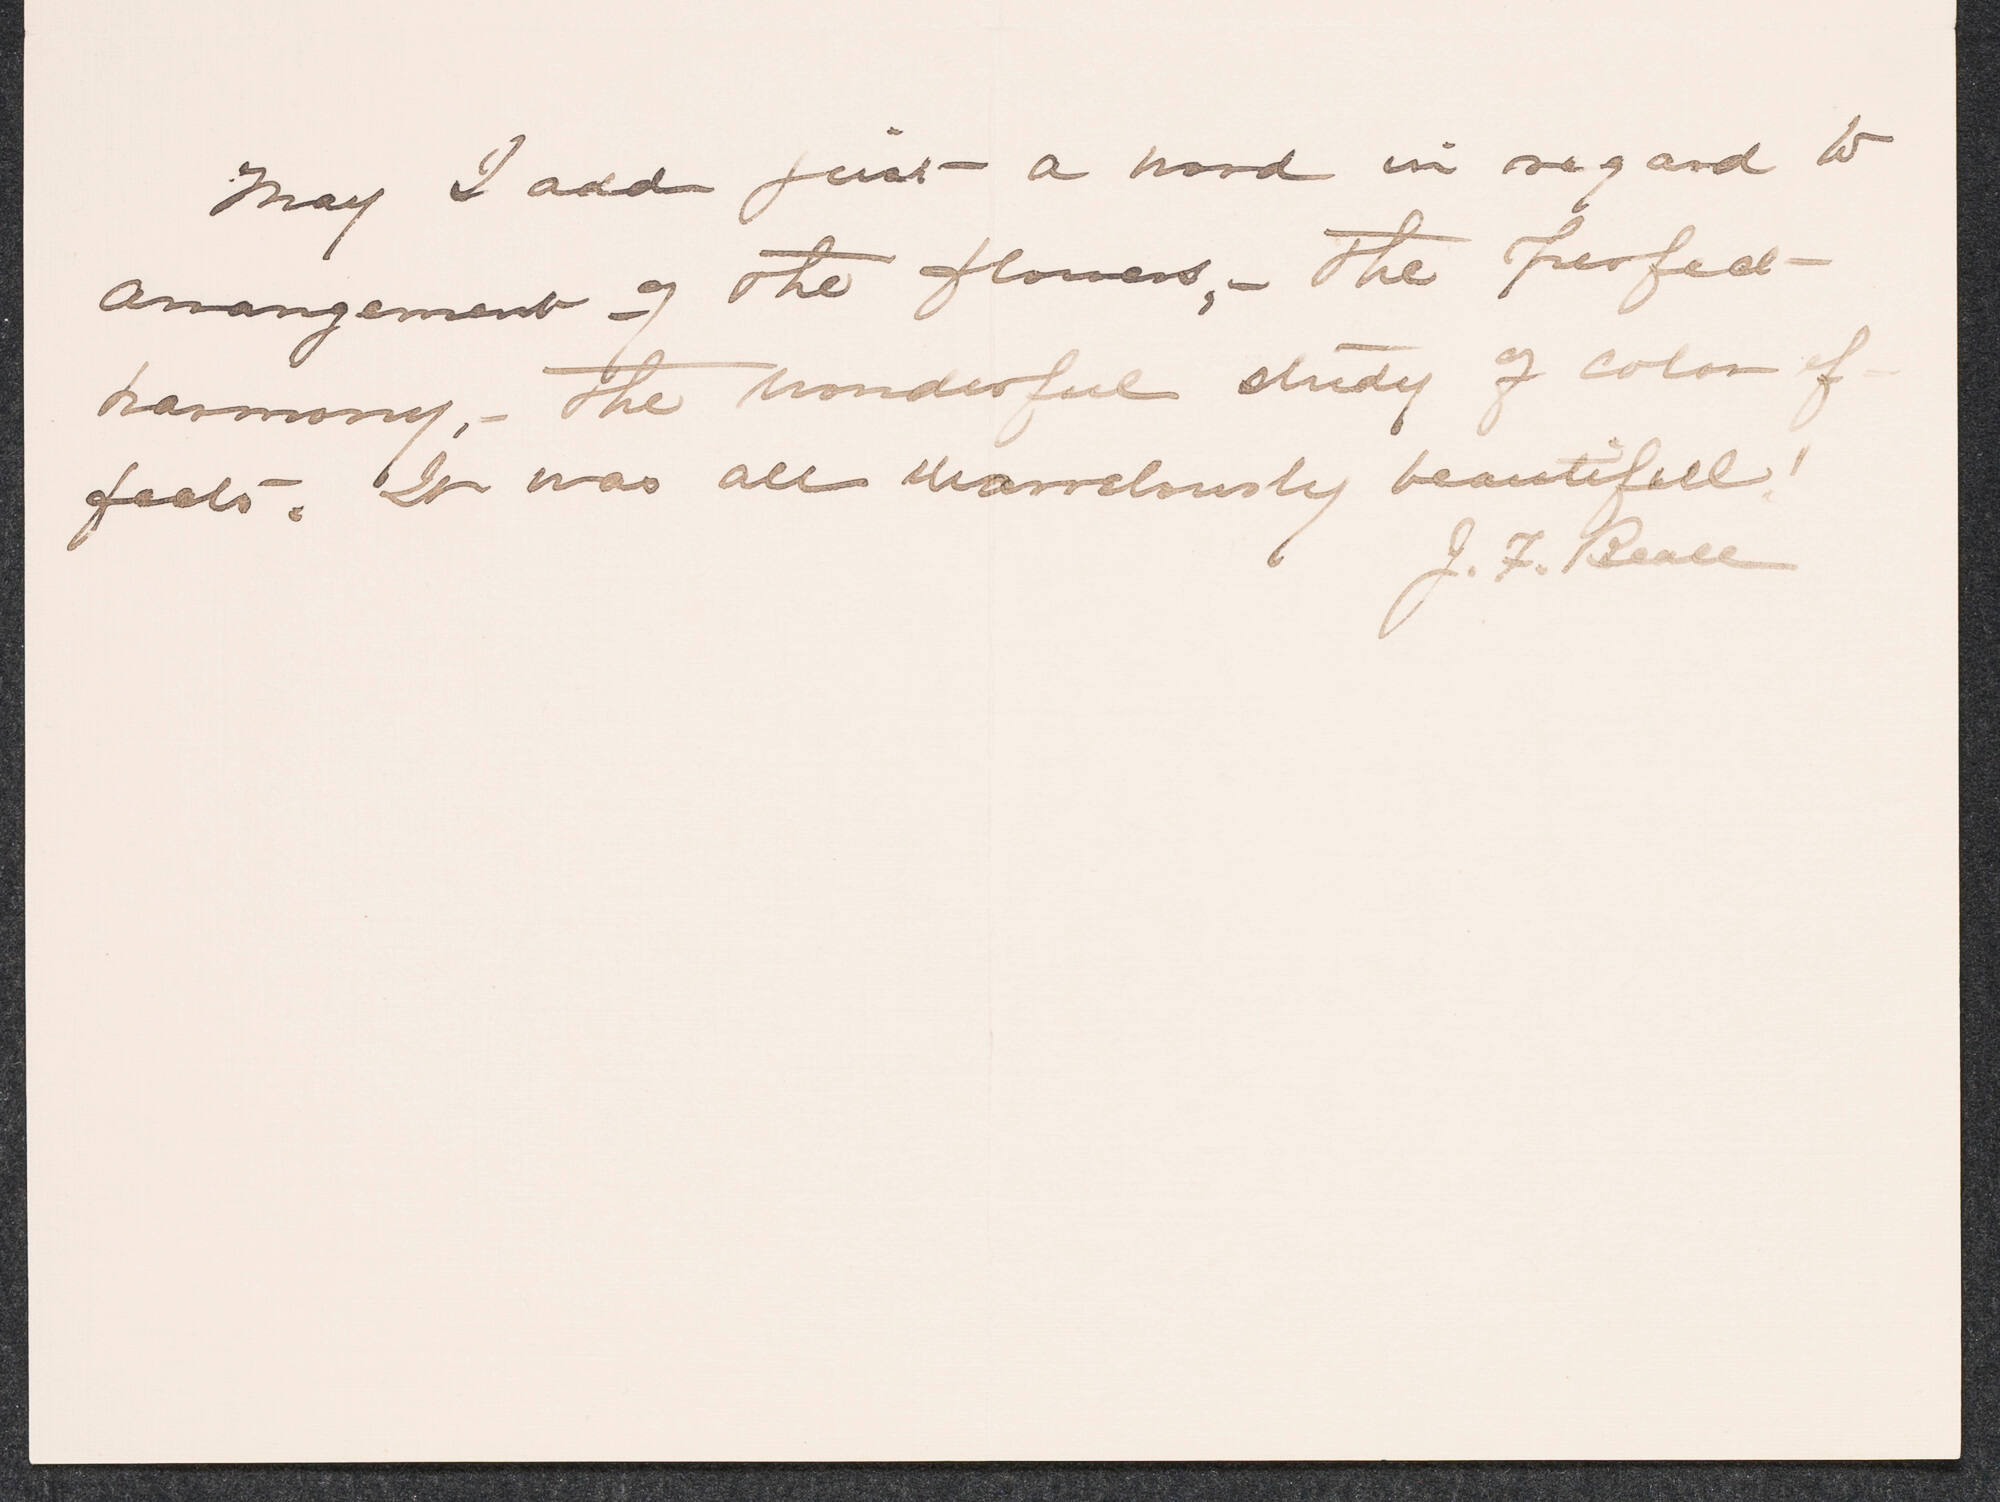 May I add just a word in regard to
arrangement of the flowers,- the perfect
harmony,- the wonderful study of color ef-
fects. It was all marvelously beautifull!
J. F. Beall